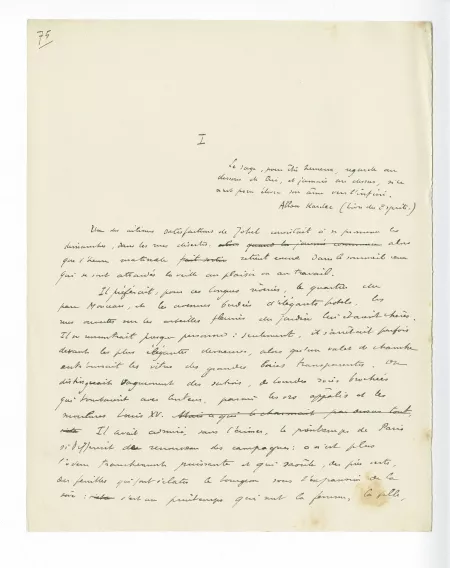 75
I
Le sage, pour être heureux, regarde au
dessous de lui, et jamais au dessus, si ce
n'est pour élever son âme vers l'infini.
Allan Kardec (Livre des Esprits.)
Une des intimes satisfactions de consistait à se promener les
dimanches, dans les rues désertes, alors
que l'heure matinale retient encore dans le sommeil ceux
qui se sont attardés la veille au plaisir ou au travail.
Il préférait, pour ces longues rêveries, le quartier du
parc Monceau, de les avenues bordées d'élégants hotels, les
rues ouvertes sur les corbeilles fleuries du jardin lui étaient chères.
Il ne rencontrait presque personne : seulement, il s'arrêtait parfois
devant les plus élégantes demeures, alors qu'un valet de chambre
entr'ouvrait les vitres des grandes baies transparentes. On
distinguait vaguement des satins, de lourdes soies brochées
qui tombaient avec lenteur, parmi les ors appâlis et les
moulures Louis XV.
Il avait admiré, sous l' le printemps de Paris
si différent du renouveau des campagnes ; ce n'est plus
l'odeur puissante et qui saoûle, des prés verts,
des feuilles qui font éclater le bourgeon sous l'expansion de la
sève : c'est un printemps qui sent la femme, la ville,